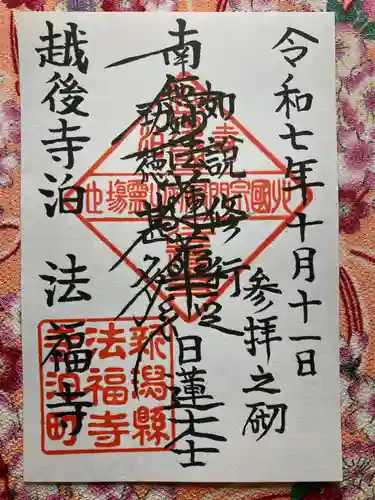 令和七年十月十一日
参拝之砌
如説修行
南無妙法蓮華経
日蓮大士
功徳甚多
越後寺泊 法福寺
新潟縣
法福寺
寺泊町